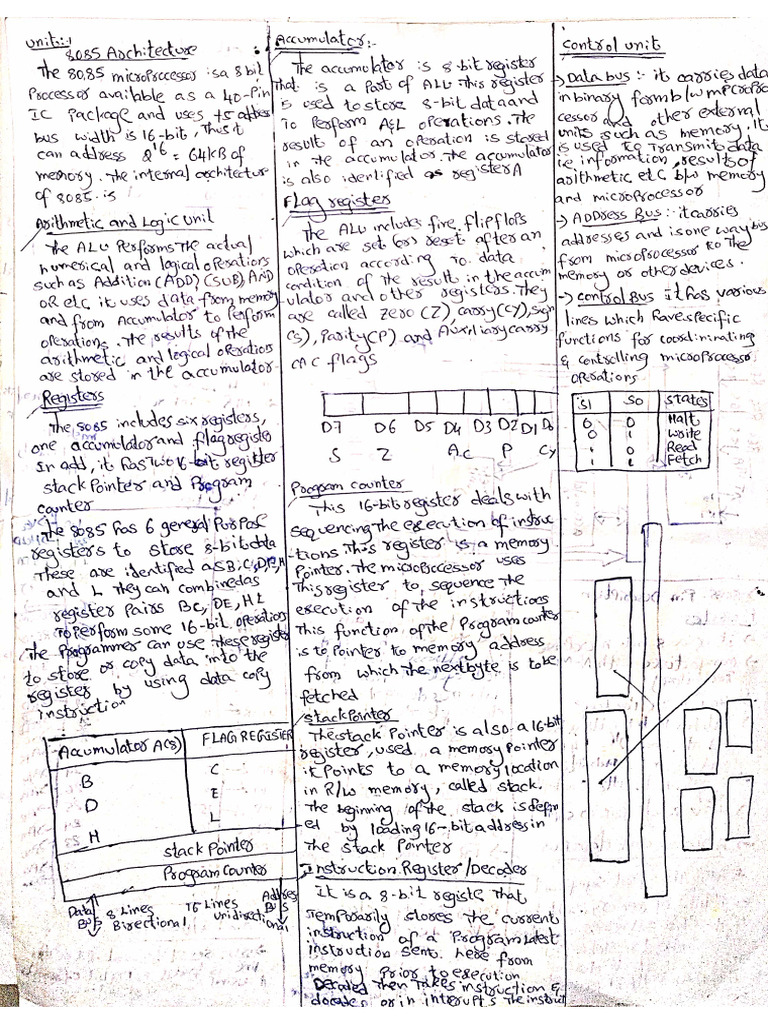 unit:-1
8085 Architecture
The 8085 microprocessor is a 8 bit
Processor available as a 40-Pin
IC Package and uses +5 address
bus width is 16-bit, Thus it
can address 2^16 = 64KB of
memory. The internal architecture
of 8085 is
Arithmetic and Logic Unit
The ALU Performs The actual
numerical and logical operations
such as Addition (ADD) (SUB), AND
OR etc, it uses data from memory
and from Accumulator to Perform
operations. The results of the
arithmetic and logical operations
are stored in the accumulator
Registers
The 8085 includes six registers,
one accumulator and flag register
In add, it has two 16-bit register
stack Pointer and Program
counter
The 8085 has 6 general Purpose
registers to store 8-bit data
These are identified as B, C, D, E, H
and L They can combined as
register Pairs BC, DE, HL
To Perform some 16-bit operations
The Programmer can use these register
to store or copy data into the
register by using data copy
instruction
Accumulator A(8) FLAG REGISTER
B C
D E
H L
stack Pointer
Program Counter
Data Bus 8 Lines Birectional 16 Lines unidirectional Address Bus
Accumulator:-
The accumulator is 8-bit register
That is a Part of ALU This register
is used to store 8-bit data and
To Perform A&L operations. The
result of an operation is stored
in the accumulator. The accumulator
is also identified as register A
Flag register
The ALU includes five flipflops
which are set (or) reset after an
operation according to data
condition of the result in the accum
ulator and other registers. They
are called zero (Z), carry (CY), sign
(S), Parity(P) and Auxiliary carry
CAC flags
D7 D6 D5 D4 D3 D2 D1 D0
S Z A.c P Cy
Program counter
This 16-bit register deals with
sequencing the execution of instruc
-tions. This register is a memory
Pointer. The microprocessor uses
This register to sequence the
execution of the instructions
This function of the Program counter
is to Pointer to memory address
from which The next byte is to be
fetched
stack Pointer
The stack Pointer is also a 16-bit
register, used a memory Pointer
it Points to a memory location
in R/W memory, called stack.
The beginning of the stack is defin
ed by loading 16-bit address in
The stack Pointer
Instruction Register/Decoder
It is a 8-bit registe that
Temporarily stores the current
instruction of a Program Latest
instruction sent here from
memory Prior to execution
Decoded Then Takes instruction &
or in interrupts The instruct
control unit
→ Data bus :- it carries data
in binary form b/w micropro
cessor and other external
units such as memory. It
is used to Transmit data
i.e information, results of
arithmetic etc b/w memory
and microprocessor
→ Address Bus :- it carries
addresses and is one way bus
from microprocessor to The
memory or other devices.
→ control Bus It has various
lines which have specific
functions for coordinating
& controlling microprocessor
operations
S1 S0 States
0 0 Halt
0 1 write
1 0 Read
1 1 Fetch